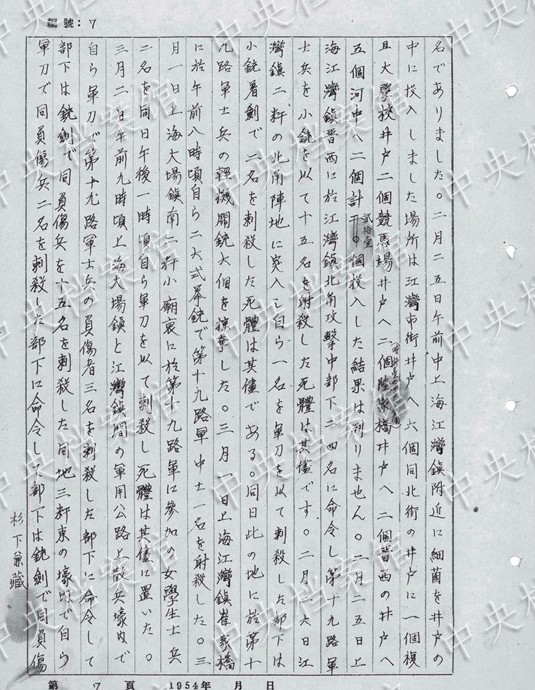 編號: 7
名でありました。二月二五日午前中上海江灣鎮附近に細菌を井戸の
中に投入しました場所は江灣市街井戸へ六個同北街の井戸に一個複
旦大學校井戸二個競馬場井戸へ二個 橋井戸へ二個 西の井戸へ
五個河中へ二個計 個投入した結果は判りません。二月二五日上
海江灣鎮 西に於江灣鎮北角攻擊中部下二四名に命令し第十九路軍
士兵を小銃を以て十五名を射殺した死體は其儘です。二月二六日江
灣鎮二粁の北南陣地に突入し自ら一名を軍刀を以て刺殺した部下は
小銃着劍で二名を刺殺した死體は其儘である。同日此の地に於第十
九路軍士兵の輕機関銃六個を掠奪した。三月一日上海江灣鎮 橋
に於午前八時頃自ら二六式拳銃で第十九路軍中士一名を射殺した。三
月一日上海大場鎮南二粁小廟裏に於第十九路軍に參加の女學生士兵
二名を同日午後一時頃自ら軍刀を以て刺殺し死體は其儘に置いた。
三月二日午前九時頃上海大場鎮と江灣鎮間の軍用公路上散兵壕内で
自ら軍刀で第十九路軍士兵の負傷者三名を刺殺した部下に命令して
部下は銃劍で同負傷兵を十五名を刺殺した同地三粁東の壕 で自ら
軍刀で同負傷兵二名を刺殺した部下に命令して部下は銃劍で同負傷
杉下兼藏
第 7 頁 1954年 月 日
中央档案馆